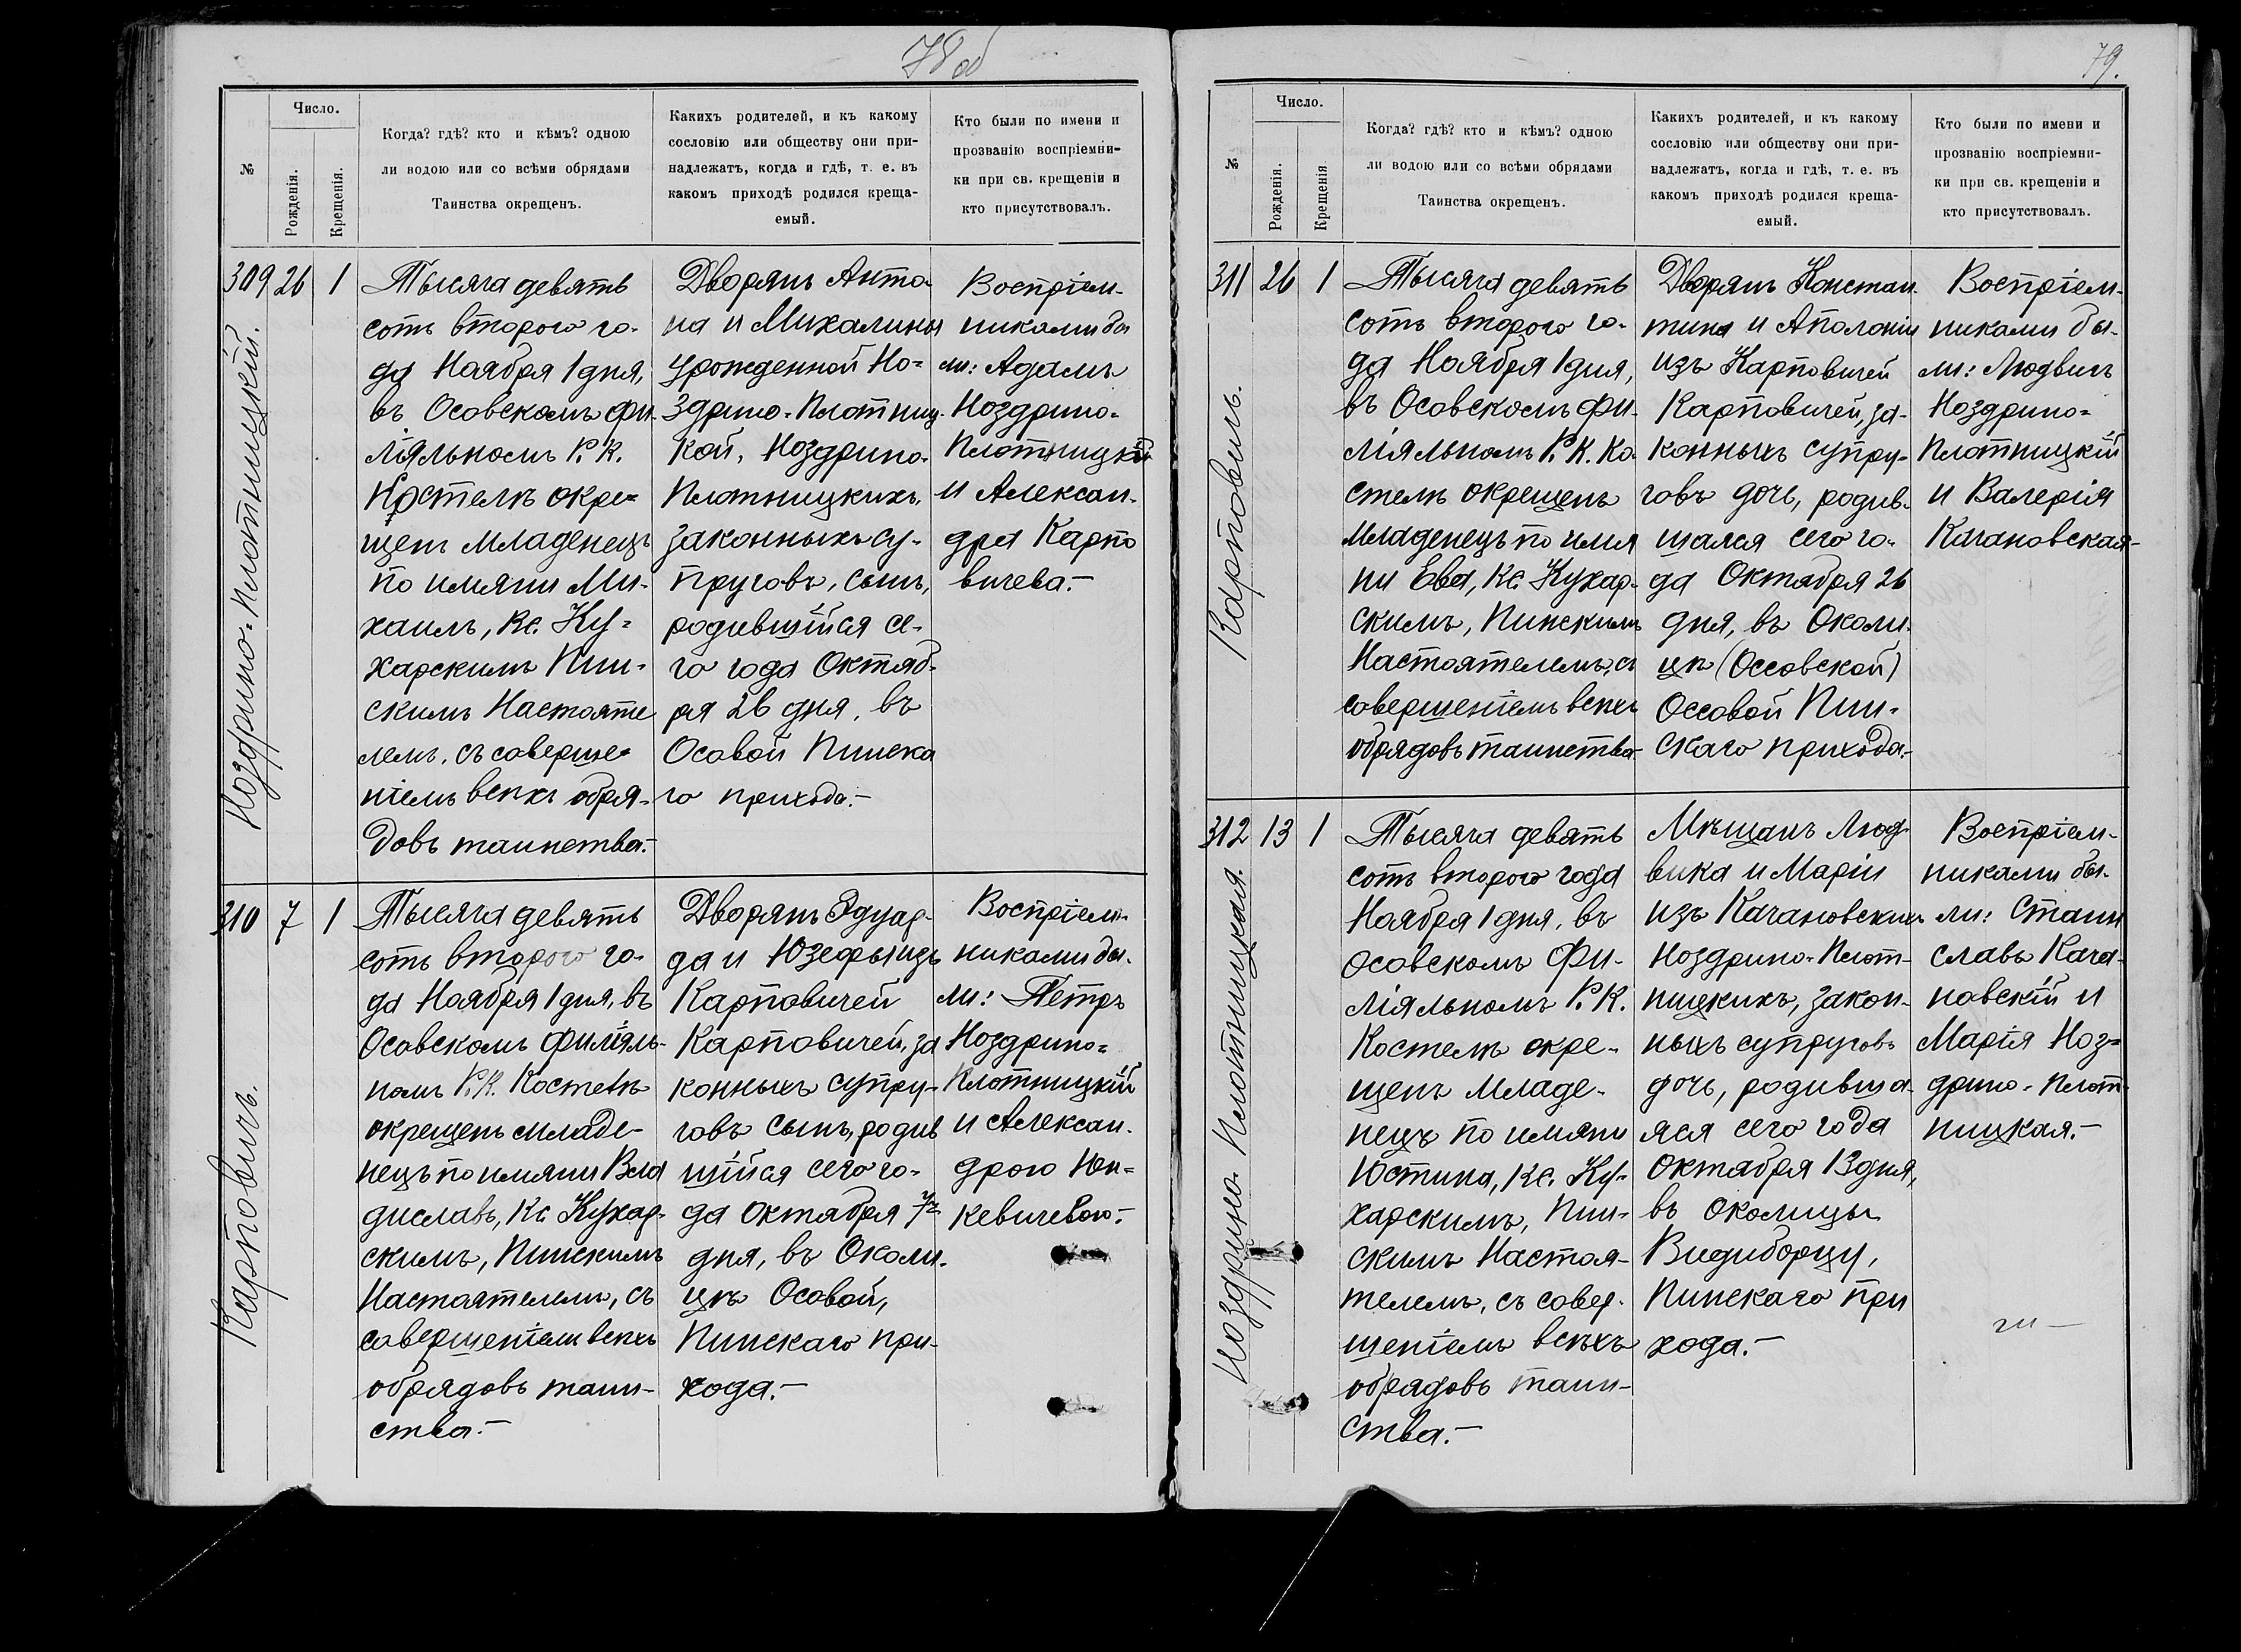 78 об
№
Число.
Рожденія.
Крещенія.
Когда? гдѣ? кто и кѣмъ? одною
ли водою или со всѣми обрядами
Таинства окрещенъ.
Какихъ родителей, и къ какому
сословію или обществу они при-
надлежатъ, когда и гдѣ, т. е. въ
какомъ приходѣ родился креща-
емый.
Кто были по имени и
прозванію воспріемни-
ки при св. крещеніи и
кто присутствовалъ.
309 26 1
Ноздрино-Плотницкій.
Тысяча девять
сотъ второго го-
да Ноября 1 дня,
въ Осовскомъ фи-
ліяльномъ Р. К.
Костелѣ окре=
щенъ младенецъ
по имяни Ми-
хаилъ, Кс. Ку=
харскимъ Пин-
скимъ Настояте
лемъ, съ соверше=
ніемъ всѣхъ обря-
довъ таинства.-
Дворянъ Анто-
на и Михалины
урожденной Но=
здрино-Плотниц-
кой, Ноздрино-
Плотницкихъ,
законныхъ су-
пруговъ, сынъ,
родившійся се-
го года Октяб-
ря 26 дня, въ
Осовой Пинска
го прихода.-
Воспріем-
никами бы
ли: Адамъ
Ноздрино-
Плотницкій
и Алексан-
дра Карпо
вичева.-
310 7 1
Карповичъ.
Тысяча девять
сотъ второго го-
да Ноября 1 дня, въ
Осовскомъ филіяль-
номъ Р. К. Костелѣ
окрещенъ младе-
нецъ по имяни Вла
диславъ, Кс. Кухар-
скимъ, Пинскимъ
Настоятелемъ, съ
совершеніемъ всѣхъ
обрядовъ таин-
ства.-
Дворянъ Эдуар-
да и Юзефы изъ
Карповичей
Карповичей, за
конныхъ супру-
говъ сынъ, родив
шійся сего го-
да Октября 7го
дня, въ Околи-
цѣ Осовой,
Пинскаго при-
хода.-
Воспріем-
никами бы-
ли: Петръ
Ноздрино=
Плотницкій
и Алексан-
дрою Юн-
кевичевою.-
79.
№
Число.
Рожденія.
Крещенія
Когда? гдѣ? кто и кѣмъ? одною
ли водою или со всѣми обрядами
Таинства окрещенъ.
Какихъ родителей, и къ какому
сословію или обществу они при-
надлежатъ, когда и гдѣ, т. е. въ
какомъ приходѣ родился креща-
емый.
Кто были по имени и
прозванію воспріемни-
ки при св. крещеніи и
кто присутствовалъ.
311 26 1
Карповичъ.
Тысяча девять
сотъ второго го-
да Ноября 1 дня,
въ Осовскомъ фи-
ліяльномъ Р. К. Ко-
стелѣ окрещенъ
младенецъ по имя
ни Ева, Кс. Кухар-
скимъ, Пинскимъ
Настоятелемъ, съ
совершеніемъ всѣхъ
обрядовъ таинства.
Дворянъ Констан-
тина и Аполоніи
изъ Карповичей
Карповичей, за-
конныхъ супру-
говъ дочь, родив-
щался сего го-
да Октября 26
дня, въ Околи-
цѣ (Оссовской)
Оссовой Пин-
скаго прихода.-
Воспріем-
никами бы-
ли: Людвигъ
Ноздрино=
Плотницкій
и Валерія
Качановская-
312 13 1
Ноздрино-Плотницкая.
Тысяча девять
сотъ второго года
Ноября 1 дня, въ
Осовскомъ Фи-
ліяльномъ Р. К.
Костелѣ окре-
щенъ младе-
нецъ по имяни
Юстина, Кс. Ку-
харскимъ, Пин-
скимъ Настоя-
телемъ, съ совер-
шеніемъ всѣхъ
обрядовъ таин-
ства.-
Мѣщанъ Люд-
вика и Маріи
изъ Качановскихъ
Ноздрино-Плот-
ницкихъ, закон-
ныхъ супруговъ
дочь, родивша-
яся сего года
Октября 13 дня,
въ околицы
Видиборцу,
Пинскаго при
хода.-
Воспріем-
никами бы-
ли: Стани
славъ Кача-
новскій и
Марія Ноз=
дрино-Плот-
ницкая.-